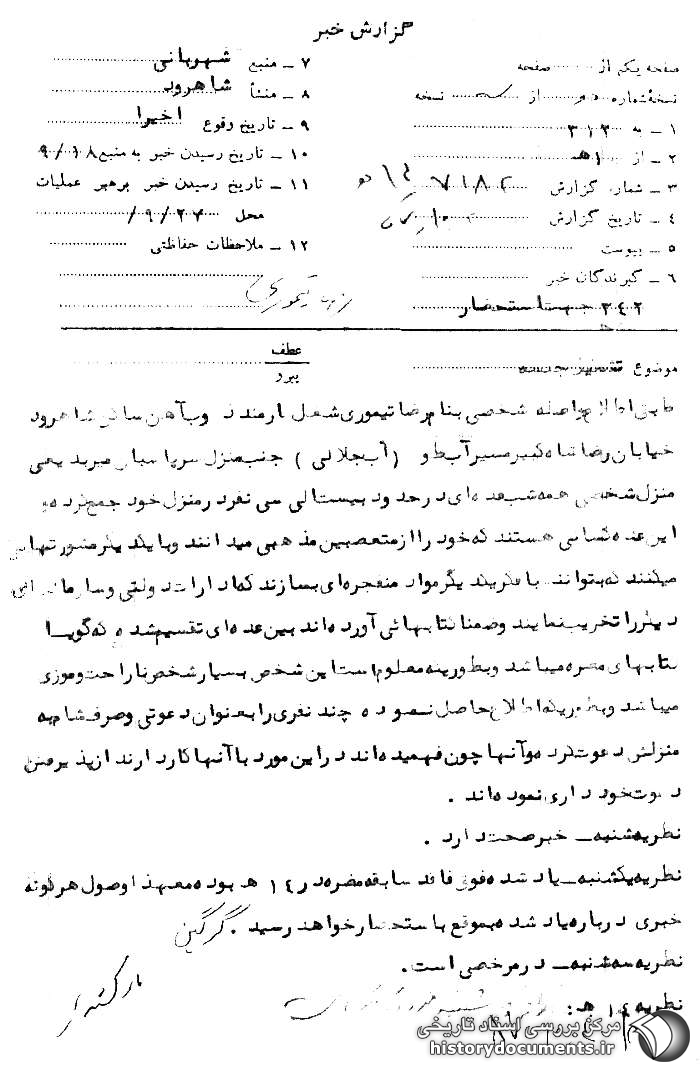 گزارش خبر
صفحه یکم از صفحه
نسخه شماره از نسخه
۱ ـ به ۳۱۲
۲ ـ از ۱۴ ه‍
۳ ـ شماره گزارش ۷۱۸۲
۴ ـ تاریخ گزارش
۵ ـ پیوست
۶ ـ گیرندگان خبر
۳۴۲ جهت استحضار
۷ ـ منبع شهربانی
۸ ـ منشأ شاهرود
۹ ـ تاریخ وقوع اخیرا
۱۰ ـ تاریخ رسیدن خبر به منبع ۹/۱۸
۱۱ ـ تاریخ رسیدن خبر برهبر عملیات
محل ۹/۲۷/
۱۲ ـ ملاحظات حفاظتی
رضا تیموری
موضوع تشکیل جلسه
عطف
پیرو
طبق اطلاع واصله شخصی بنام رضا تیموری شغل ارمند ذوب آهن ساکن شاهرود
خیابان رضا شاه کبیر مسیر آبطو (آب جلالی) جنب منزل سرپاسبان میربدیعی
منزل شخصی همه شب عده ای در حدود بیست الی سی نفر در منزل خود جمع کرده و
این عده کسانی هستند که خود را از متعصبین مذهبی میدانند و با یکدیگر مشورتهائی
میکنند که بتوانند با فکر یکدیگر مواد منفجره ای بسازند که ادارات دولتی و سازمانهای
دیگر را تخریب نمایند و ضمنا کتابهائی آورده اند بین عده ای تقسیم شده که گویا
کتابهای مضره میباشد و بطوریکه معلوم است این شخص بسیار شخص ناراحت و موزی
میباشد و بطوریکه اطلاع حاصل نموده چند نفری را بعنوان دعوتی و صرف شام به
منزلش دعوت کرده و آنها چون فهمیده اند در این مورد با آنها کار دارند از پذیرفتن
دعوت خودداری نموده اند .
نظریه شنبه ـ خبر صحت دارد .
نظریه یکشنبه ـ یاد شده فوق فاقد سابقه مضره در ۱۴ ه‍ بوده معهذا وصول هرگونه
خبری درباره یاد شده بموقع باستحضار خواهد رسید . گرگین
نظریه سه شنبه ـ در مرخصی است.
نظریه ۱۴ ه‍:
مرکز بررسی اسناد تاریخی
historydocuments.ir